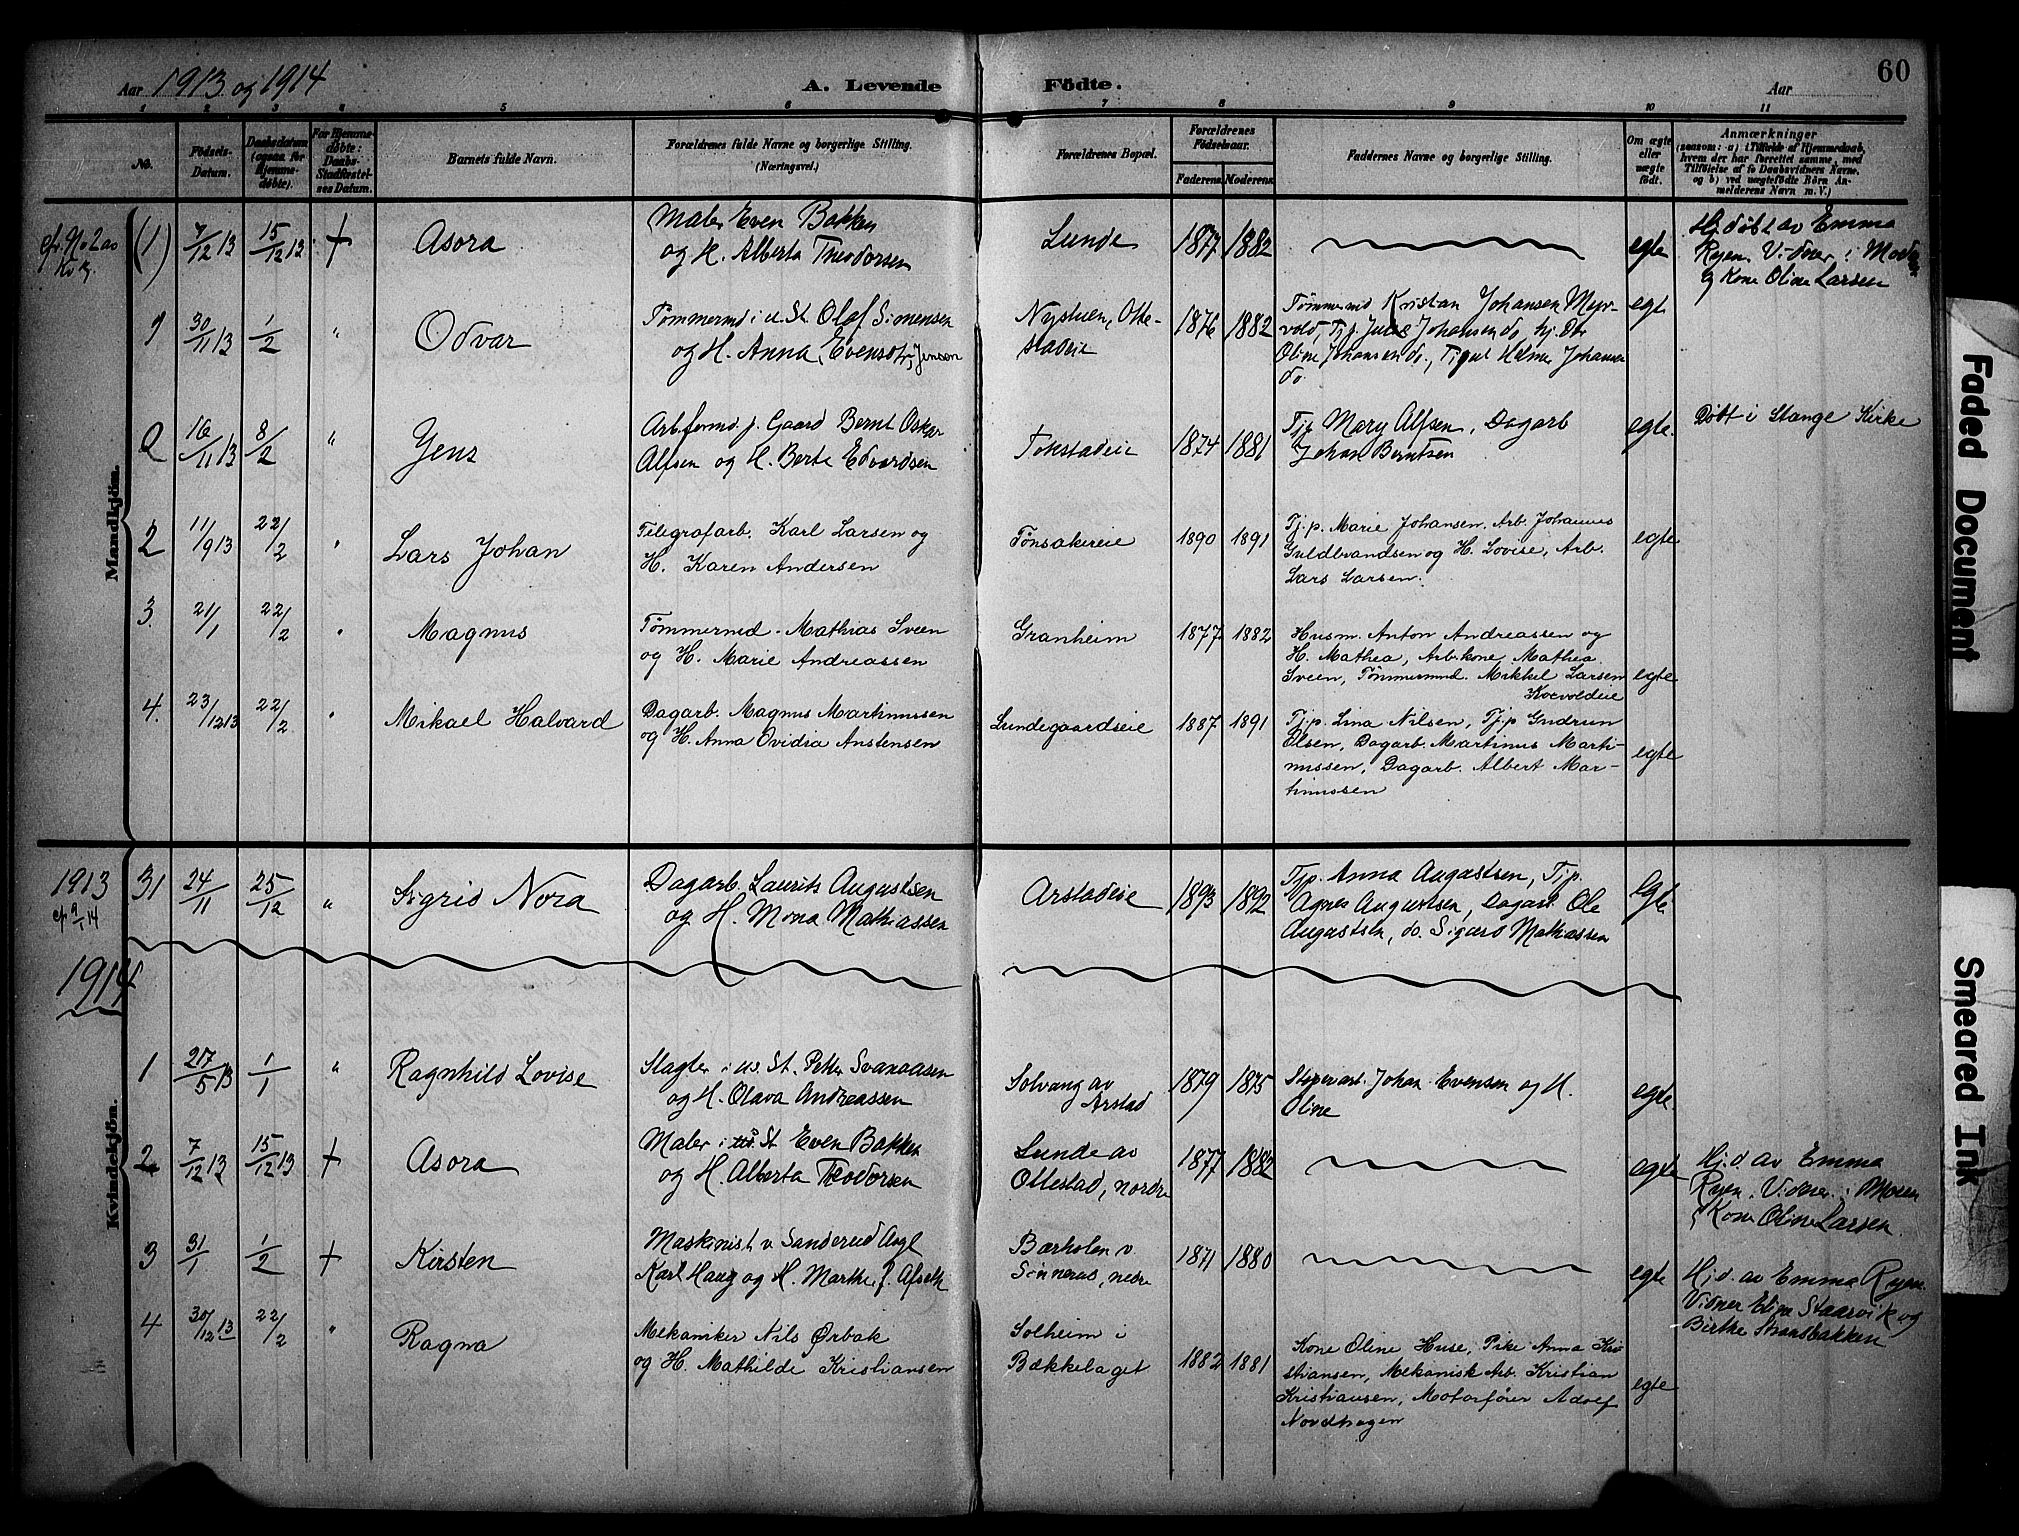 60
Aar 1913 og 1914
A. Levende Födte.
Aar
1 2 3 4 5 6 7 8 9 10 11
No.
Födsels-Datum.
Daabsdatum (ogsaa for Hjemmedöbte).
For Hjemmedöbte: Daabs-Stadfæstelses Datum.
Barnets fulde Navn.
Forældrenes fulde Navne og borgerlige Stilling. (Næringsvei.)
Forældrenes Bopæl.
Forældrenes Födselsaar.
Faderens. Moderens.
Faddernes Navne og borgerlige Stilling.
Om ægte eller uægte födt.
Anmærkninger
(saasom: a) i Tilfælde af Hjemmedaab, hvem der har forrettet samme, med Tilföielse af to Daabsvidners Navne, og b) ved uægtefödte Börn Anmelderens Navn m. V.)
Mandkjön.
(1) 7/12 13 15/12 13 + Asora
Maler Even Bakken
og H. Alberta Theodorsen
Lunde 1877 1882 egte
Hj.døbt av Emma
Ryen Vidner i Moden
og Kone Oline Larsen
1 30/11 13 1/2 " Odvar
Tømmermd i u. St. Olaf Simensen
og H. Anna Evensdtr, Jenson
Nystuen, Otte-
stadeie
1876 1882
Tømmermd Kristian Johansen Myr-
vold, Tjp. Julie Johansen do, hj. Dtr
Oline Johansen do., Tjgut Helmer Johansen
do.
egte
2 16/11 13 8/2 " Jens
Arb.formd p. Gaard Bernt Oskar
Alfsen og H. Berte Edvardsen
Tokstadeie 1874 1881
Tjp Mary Alfsen, Dagarb
Johan Berntsen
egte.
Døbt i Stange Kirke
2 11/9 13 22/2 " Lars Johan
Telegrafarb. Karl Larsen og
H. Karen Andersen
Tønsakereie 1890 1891
Tj.p. Marie Johansen, Arb. Johannes
Guldbrandsen og H. Lovise, Arb.
Lars Larsen.
egte
3. 21/1 22/2 " Magnus
Tømmermd. Mathias Sveen
og H. Marie Andreassen
Granheim 1877 1882
Husm. Anton Andreassen og
H. Mathea, Arb.kone Mathea
Sveen, Tømmermd. Mikkel Larsen
Korvoldeie
egte
4. 23/12 13 22/2 " Mikael Halvard
Dagarb. Magnus Martinussen
og H. Anna Ovidia Anstensen
Lundegaardseie 1887 1891
Tj.p. Lina Nilsen, Tj.p Gudrun
Olsen, Dagarb. Martinus Marti-
nussen, Dagarb. Albert Mar-
tinussen
egte
1913
31 24/11 25/12 " Sigrid Nora
Dagarb. Laurits Augustsen
og H. Mona Mathiassen
Arstadeie 1893 1892
Tjp. Anna Augustsen, Tjp.
Agnes Augustsen, Dagarb. Ole
Augustsen, do. Sigurd Mathiassen
Egte
1914
Kvindekjön.
1 27/5 13 1/1 " Ragnhild Lovise
Slagter i us. St. Petter Svanaasen
og H. Olava Andreassen
Solvang av
Arstad
1879 1875
Johan Evensen og H.
Oline
egte.
2 7/12 13 15/12 13 + Asora
Maler i us. St Even Bakken
og H. Alberta Theodorsen
Lunde av
Ottestad, nordre
1877 1882 egte
Hj.d. av Emma
Ryen. Vidner i Mosen
& Kone Oline Larsen
3 31/1 1/2 + Kirsten
Maskinist v Sanderud Asyl
Karl Haug og H. Marthe f. Afseth
Bærholen v
Sinnerud, nedre
1871 1880 egte
Hj.d. av Emma Ryen.
Vidner Elise Staarvik og
Birthe Strandbakken
4 30/12 13 22/2 " Ragna
Mekaniker Nils Ørbak
og H. Mathilde Kristiansen
Solheim i
Bækkelaget
1882 1881
Kone Oline Huse, Pike Anna Kri-
stiansen, Mekanisk Arb. Kristian
Kristiansen, Motorfører Adolf
Nordhagen
egte
Faded Document
Smeared Ink